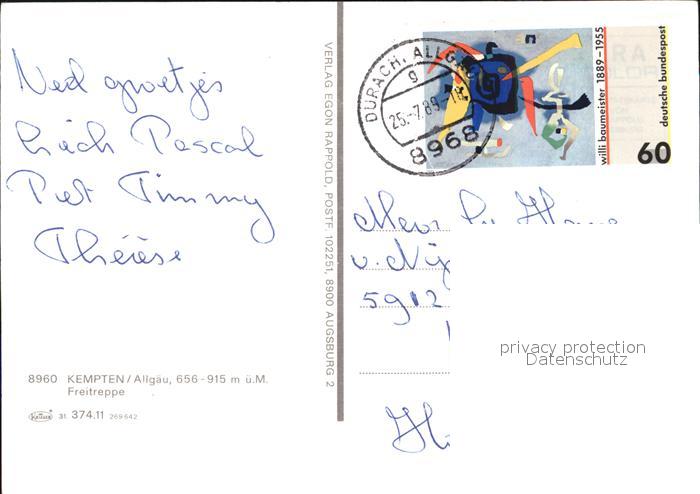 Veel groetjes
Luick Pascal
Piet Timmy
Thérèse
8960 KEMPTEN/Allgäu, 656-915 m ü.M.
Freitreppe
31. 374.11 269642
VERLAG EGON RAPPOLD, POSTF. 102251, 8900 AUGSBURG 2
DURACH, ALLG
g
25.-7.89-18
8968
willi baumeister 1889-1955
deutsche bundespost
60
Mevr
v. Nij
5912
privacy protection
Datenschutz